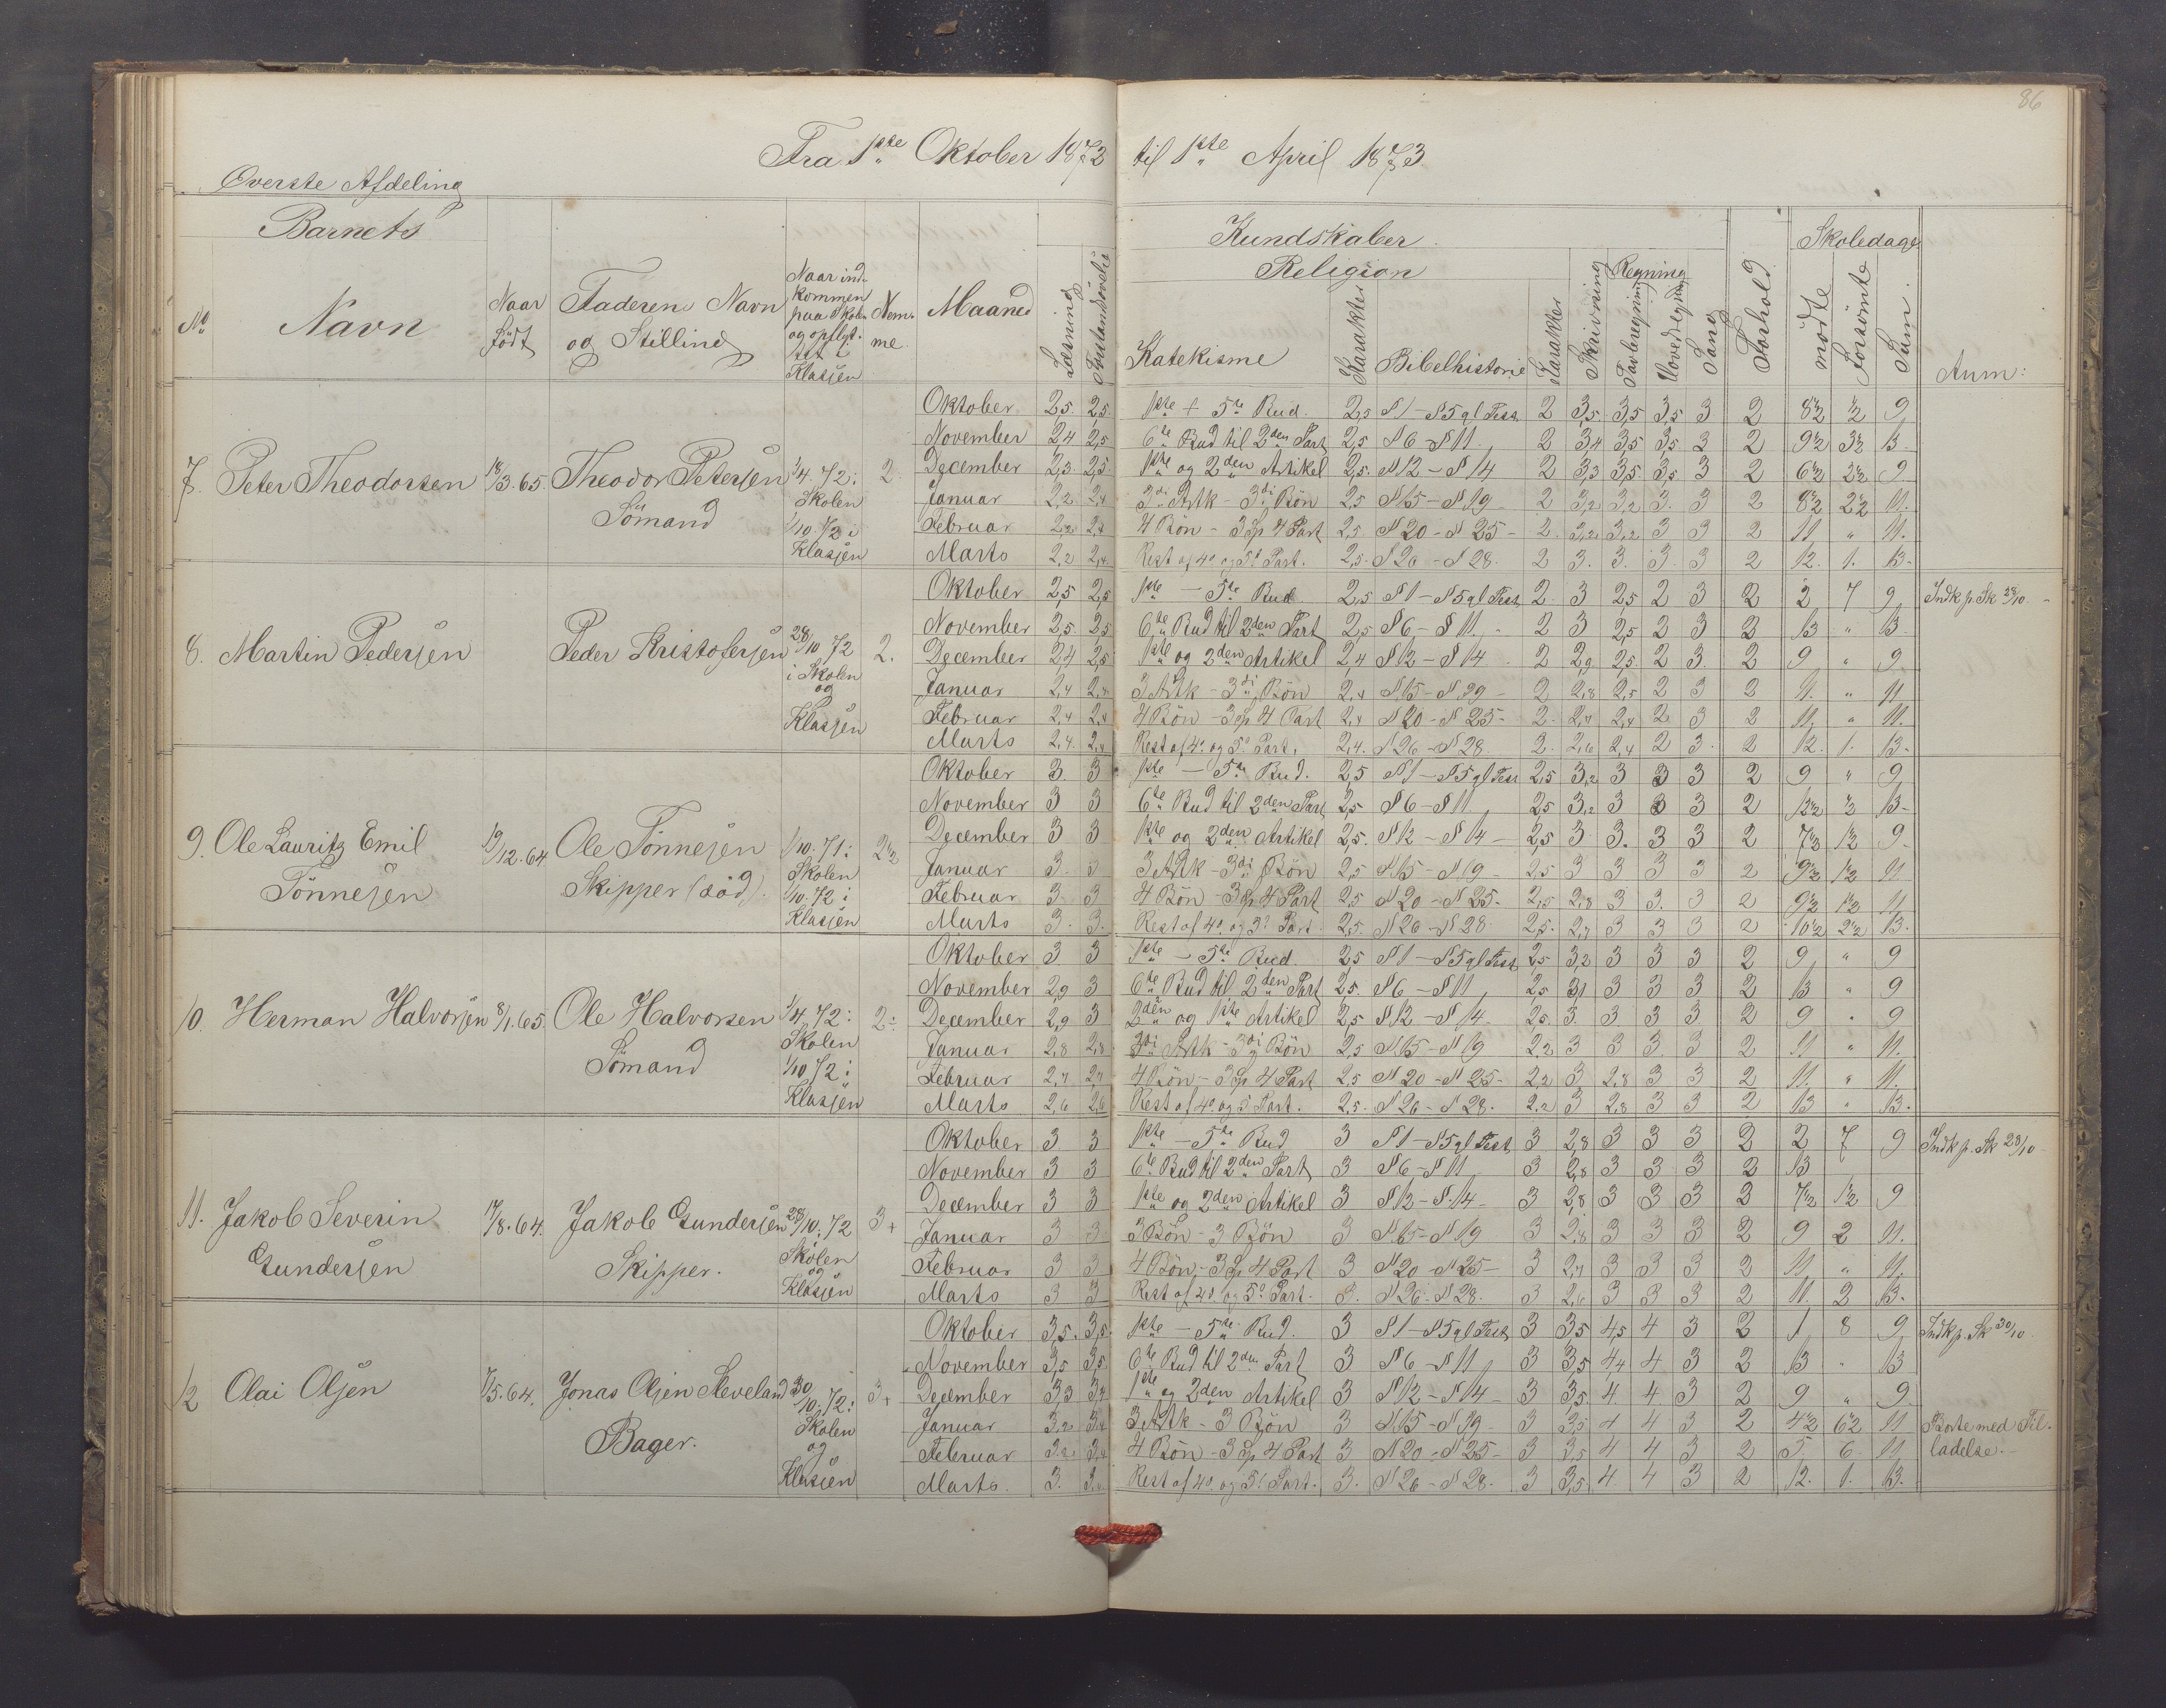 86
Fra 1ste Oktober 1872 til 1ste April 1873
Øverste Afdeling
Barnets
Kundskaber
Skoledage
Religion
Regning
No
Navn
Naar født
Faderens Navn og Stilling
Naar indkommen paa Skolen og opflyttet i Klassen
Nemme
Maaned
Læsning
Forstandsøvelse
Katekisme
Karakter
Bibelhistorie
Karakter
Skrivning
Tavleregning
Hovedregning
Sang
Forhold
mødte
forsømte
Sum
Anm:
7. Peter Theodorsen 18/3.65. Theodor Petersen Sömand 1/4.72 i Skolen 1/10.72 i Klassen 2.
Oktober 2,5 2,5 1ste + 5te Bud. 2,5 § 1 – § 5 gl Test. 2 3,5 3,5 3,5 3 2 8½ ½ 9
November 2,4 2,5 6te Bud til 2den Part 2,5 § 6 – § 11 2 3,4 3,5 3,5 3 2 9½ 3½ 13
December 2,3 2,5 1ste og 2den Artikel 2,5 § 12 – § 14 2 3,3 3,5 3,5 3 2 6½ 2½ 9
Januar 2,2 2,4 3die Artk – 3die Bön 2,5 § 15 – § 19 2 3,2 3,2 3 3 2 8½ 2½ 11
Februar 2,2 2,4 4 Bön – 3 Sp 4 Part 2,5 § 20 – § 25 2 3,2 3,2 3 3 2 11 " 11
Marts 2,2 2,4 Rest af 4de og 5te Part. 2,5 § 26 – § 28 2 3 3 3 3 2 12 1 13
8. Martin Pedersen Peder Kristofersen 28/10 72 i Skolen og Klassen 2.
Oktober 2,5 2,5 1ste – 5te Bud 2,5 § 1 – § 5 gl Test 2 3 2,5 2 3 2 2 7 9 Indk p. Sk 28/10
November 2,5 2,5 6te Bud til 2den Part 2,5 § 6 – § 11 2 3 2,5 2 3 2 13 " 13
December 2,4 2,5 1ste og 2den Artikel 2,4 § 12 – § 14 2 2,9 2,5 2 3 2 9 " 9
Januar 2,4 2,4 3 Artk – 3die Bön 2,4 § 15 – § 19 2 2,8 2,5 2 3 2 11 " 11
Februar 2,4 2,4 4 Bön – 3 Sp 4 Part 2,4 § 20 – § 25 2 2,7 2,4 2 3 2 11 " 11
Marts 2,4 2,4 Rest af 4de og 5te Part. 2,4 § 26 – § 28 2 2,6 2,4 2 3 2 12 1 13
9. Ole Lauritz Emil Tönnesen 19/12.64 Ole Tönnesen Skipper (död). 1/10.71 i Skolen 1/10.72 i Klassen 2½
Oktober 3 3 1ste – 5te Bud. 2,5 § 1 – § 5 gl Test 2,5 3,2 3 3 3 2 9 " 9
November 3 3 6te Bud til 2den Part 2,5 § 6 – § 11 2,5 3,2 3 3 3 2 12½ ½ 13
December 3 3 1ste og 2den Artikel 2,5 § 12 – § 14 2,5 3 3 3 3 2 7½ 1½ 9
Januar 3 3 3 Artk – 3die Bön 2,5 § 15 – § 19 2,5 3 3 3 3 2 9½ 1½ 11
Februar 3 3 4 Bön – 3 Sp 4 Part 2,5 § 20 – § 25 2,5 2,8 3 3 3 2 9½ 1½ 11
Marts 3 3 Rest af 4de og 5te Part 2,5 § 26 – § 28 2,5 2,7 3 3 3 2 10½ 2½ 13
10. Herman Halvorsen 8/1.65. Ole Halvorsen Sömand 1/4.72 i Skolen 1/10 72 i Klassen 2÷
Oktober 3 3 1ste – 5te Bud. 2,5 § 1 – § 5 gl Test 2,5 3,2 3 3 3 2 9 " 9
November 2,9 3 6te Bud til 2den Part 2,5 § 6 – § 11 2,5 3,1 3 3 3 2 13 " 9
December 2,9 3 2den og 1ste Artikel 2,5 § 12 – § 14 2,5 3 3 3 3 2 9 " 9
Januar 2,8 2,8 3die Artk – 3die Bön 2,5 § 15 – § 19 2,2 3 3 3 3 2 11 " 11
Februar 2,7 2,7 4 Bön – 3 Sp 4 Part 2,5 § 20 – § 25 2,2 3 2,8 3 3 2 11 " 11
Marts 2,6 2,6 Rest af 4de og 5 Part. 2,5 § 26 – § 28 2,2 3 2,8 3 3 2 13 " 13
11. Jakob Severin Gundersen 17/8.64. Jakob Gundersen Skipper. 28/10.72 i Skolen og Klassen 3+
Oktober 3 3 1ste – 5te Bud 3 § 1 – § 5 gl Test 3 2,8 3 3 3 2 2 7 9 Indk p. Sk 28/10
November 3 3 6te Bud til 2den Part 3 § 6 – § 11 3 2,8 3 3 3 2 13
December 3 3 1ste og 2den Artikel 3 § 12 – § 14 3 2,8 3 3 3 2 7½ 1½ 9
Januar 3 3 3 Bön – 3 Bön 3 § 15 – § 19 3 2,8 3 3 3 2 9 2 11
Februar 3 3 4 Bön – 3 Sp 4 Part 3 § 20 – § 25 3 2,7 3 3 3 2 11 " 11
Marts 3 3 Rest af 4de og 5te Part. 3 § 26 – § 28 3 2,6 3 3 3 2 11 2 13
12 Olai Olsen 7/5.64. Jonas Olsen Steveland Bager. 30/10.72 i Skolen og Klassen 3+
Oktober 3,5 3,5 1ste – 5te Bud. 3 § 1 – § 5 gl Test 3 3,5 4,5 4 3 2 1 8 9 Indk p. Sk 30/10
November 3,5 3,5 6te Bud til 2den Part 3 § 6 – § 11 3 3,5 4,4 4 3 2 13 " 13
December 3,3 1ste og 2den Artikel 3 § 12 – § 14 3 3,5 4 4 3 2 9 " 9
Januar 3,2 3 Artk – 3 Bön 3 § 15 – § 19 3 3,5 4 4 3 2 4½ 6½ 11 Borte med Til-
Februar 3,2 4 Bön – 3 Sp 4 Part 3 § 20 – § 25 3 3,5 4 4 3 2 5 6 11 ladelse.
Marts 3 Rest af 4de og 5te Part. 3 § 26 – § 28 3 3,5 4 4 3 2 12 1 13